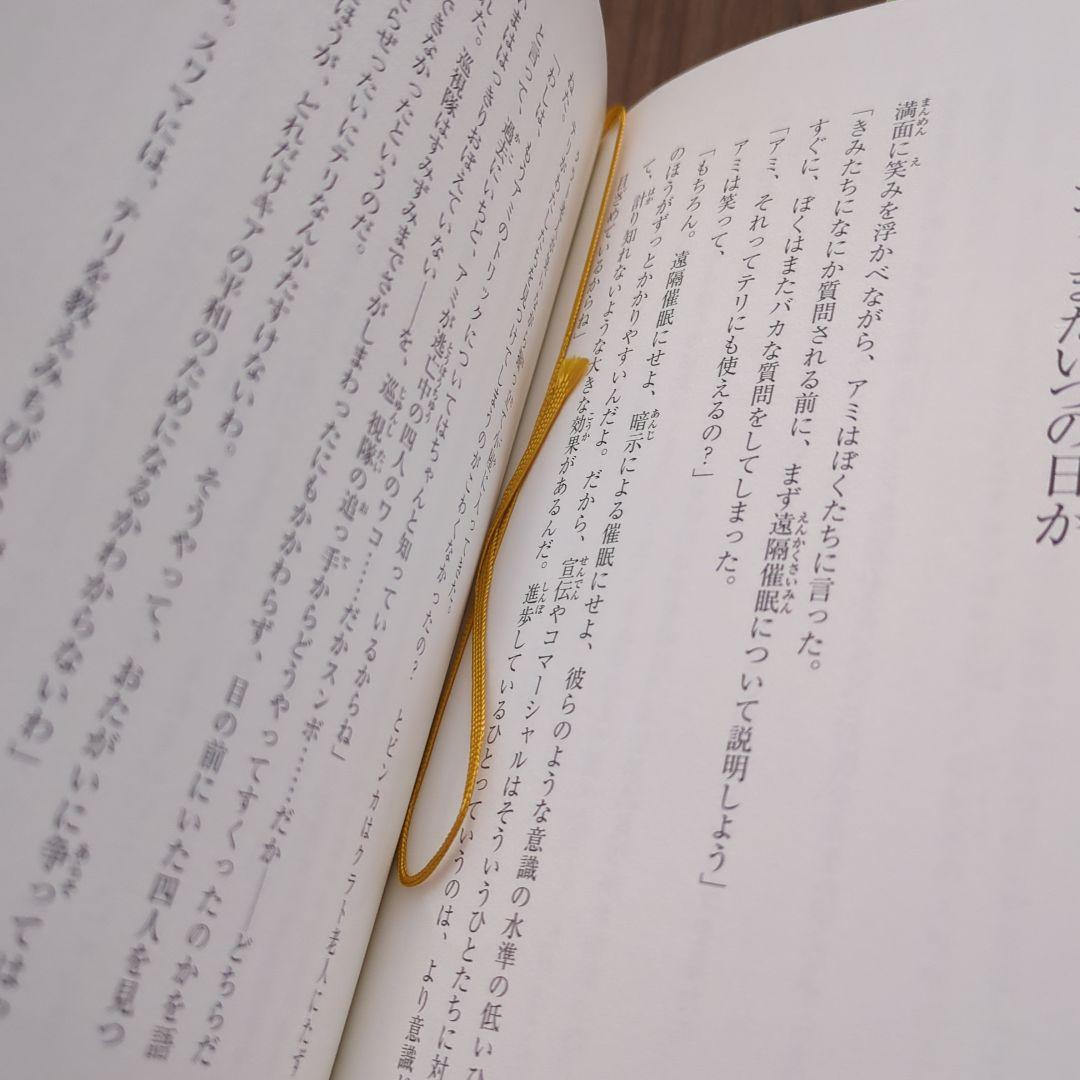 またいつの日か
満面に笑みを浮かべながら、アミはぼくたちに言った。
「きみたちになにか質問される前に、まず遠隔催眠について説明しよう」
すぐに、ぼくはまたバカな質問をしてしまった。
「アミ、それってテリにも使えるの？」
アミは笑って、
「もちろん。遠隔催眠にせよ、暗示による催眠にせよ、彼らのような意識の水準の低いひ
のほうがずっとかかりやすいんだよ。だから、宣伝やコマーシャルはそういうひとたちに対
て、計り知れないような大きな効果があるんだ。進歩しているひとっていうのは、より意識
目ざめているからね」
「わしは、もうアミのトリックについてはちゃんと知っているからね」
と言って、過去にいちど、アミが逃亡中の四人のワコ……だかスンボ……だか——どちらだ
いまははっきりおぼえていない——を、巡視隊の追っ手からどうやってすくったのかを語
れた。巡視隊はすみずみまでさがしまわったにもかかわらず、目の前にいた四人を見つ
できなかったというのだ。
らぜったいにテリなんかたすけないわ。そうやって、おたがいに争っては
ほうが、どれだけキアの平和のためになるかわからないわ」
スワマには、テリを教えみちび